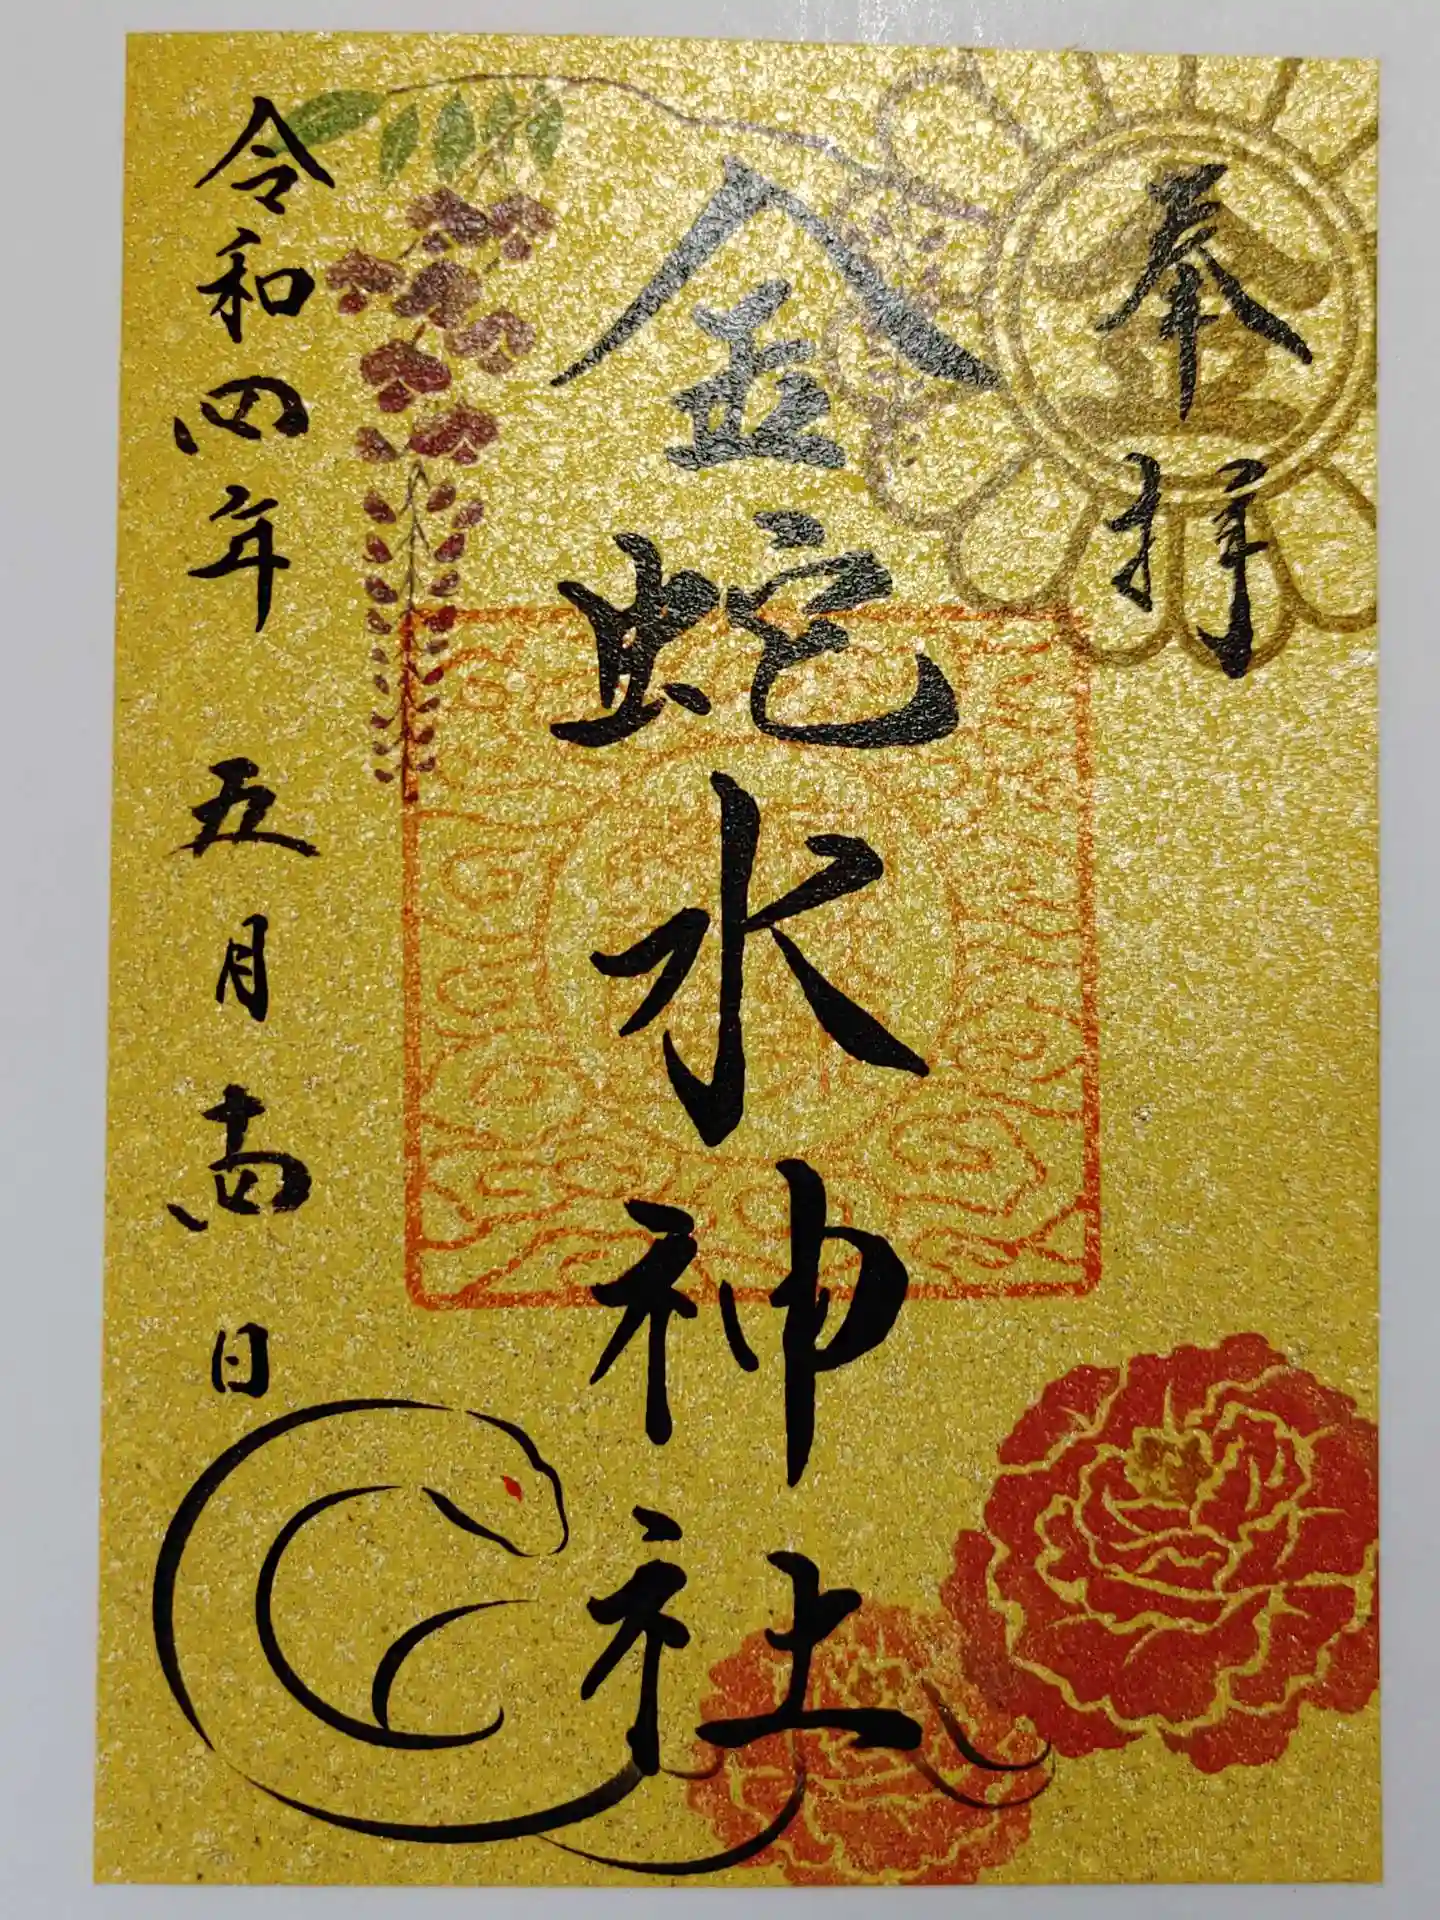 奉拝
金蛇水神社
令和四年五月十四日